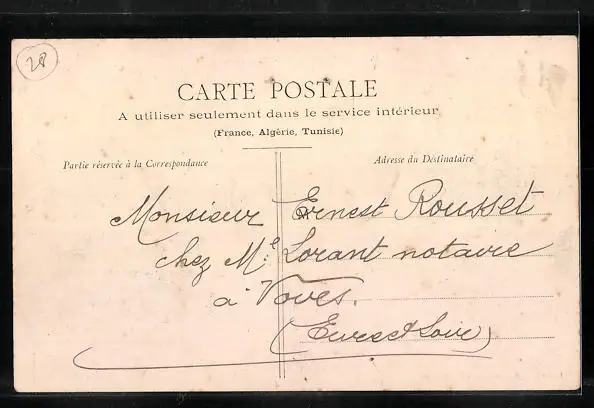 28
CARTE POSTALE
A utiliser seulement dans le service intérieur
(France, Algérie, Tunisie)
Partie réservée à la Correspondance
Adresse du Déstinataire
Monsieur Ernest Rousset
chez Me Lorant notaire
à Voves.
(Eure et Loir)